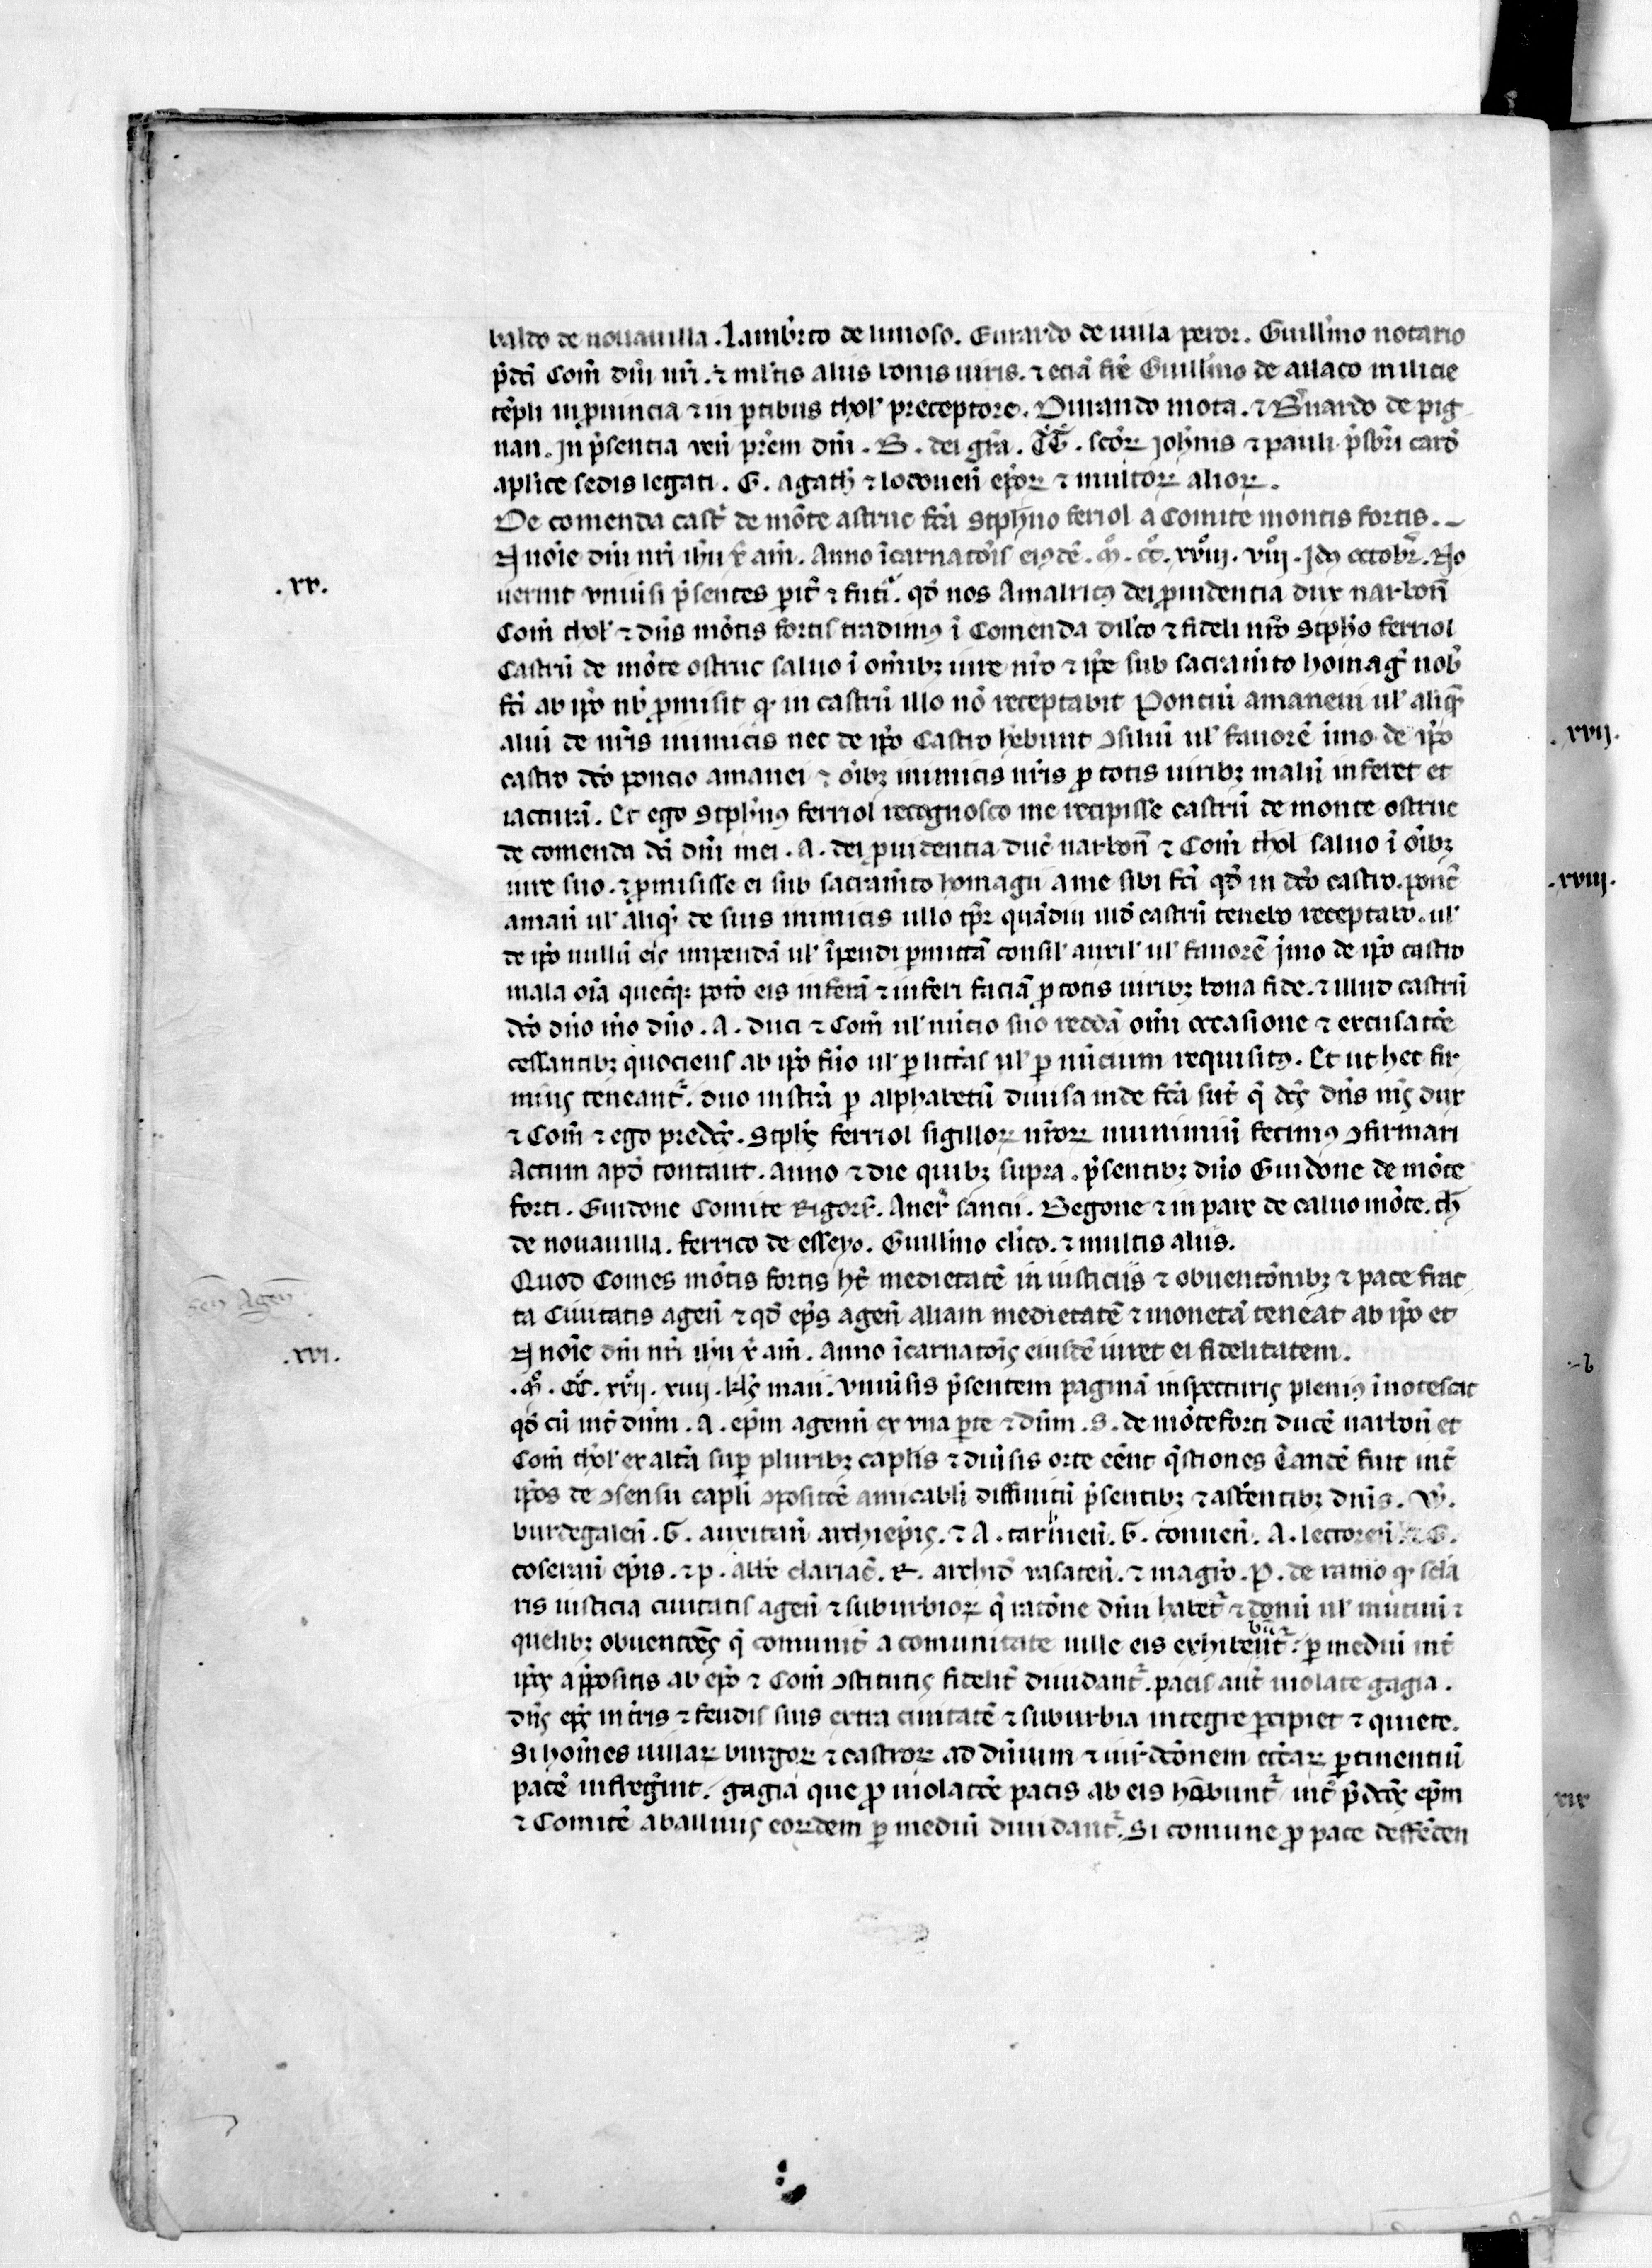 baldo de nouauilla. Lamb̃to de limoso. Eurardo de uilla peror. Guill̃mo notario
p̃dc̃i Com̃ dñi nr̃i. ⁊ ml̃tis aliis bonis uiris. ⁊ eciã fr̃e Guill̃mo de aiLaco milicie
tẽpli in ꝓuincia ⁊ in ꝑtibus thol̃ preceptore. Durando mota. ⁊ B̃nardo de pig
nan. Jn p̃sentia ueñ pr̃em dñi. B. dei gr̃a. T̃T̃. sc̃oꝝ Joh̃nis ⁊ pauli p̃sbr̃i card̃
apl̃ice sedis legati. G. agath̃ ⁊ lodoueñ ep̃oꝝ ⁊ multoꝝ alioꝝ.
De comenda cast̃ de mõte astruc fc̃ã Stph̃no feriol a Comite montis fortis.
.xv.
JN noĩe dñi nr̃i ih̃u x̃ am̃. Anno ĩcarnatõis eiꝰdẽ. M̊. CC̊. xxiij. viij. Jdꝰ octobr̃. No
uerint vniũsi p̃sentes parit̃ ⁊ futĩ. qd̃ nos Amalricꝰ dei ꝓuidentia dux narboñ
Com̃ thol̃ ⁊ dñs mõtis fortis tradimꝰ ĩ Comenda dil̃co ⁊ fideli nr̃o Stph̃o ferriol
Castrũ de mõte ostruc saluo ĩ om̃ibꝫ iure nr̃o ⁊ ip̃e sub sacram̃to homag̃ nob̃
fc̃i ab ip̃o nb̃ ꝓmisit qꝫ in castrũ illo nõ receptabit Ponciũ amaneui ul̃ aliq̃
aliũ de nr̃is inimicis nec de ip̃o Castro hẽbunt ꝯsiliũ ul̃ fauorẽ imo de ip̃o
castro dc̃o poncio amanei ⁊ oĩbꝫ inimicis nr̃is ꝓ totis uiribꝫ malũ inferet et
iacturã. Et ego Stph̃nꝰ ferriol recognosco me recipisse castrũ de monte ostruc
de comenda dc̃i dñi mei. A. dei ꝓuidentia duc̃ narboñ ⁊ Com̃ thol saluo ĩ oĩbꝫ
iure suo. ⁊ ꝓmisisse ei sub sacram̃to homagii a me sibi fc̃i qd̃ in dc̃o castro. ponc̃
amañ ul̃ aliq̃ de suis inimicis ullo tp̃r quãdiu illd̃ castrũ tenebo receptabo. ul̃
de ip̃o nullũ eis impendã ul̃ ĩpendi ꝑmittã consil̃ auxil̃ ul̃ fauorẽ jmo de ip̃o castro
mala oĩa quecũqꝫ pot̃o eis inferã ⁊ inferi faciã ꝓ totis uiribꝫ bona fide. ⁊ illud castrũ
dc̃o dño m̃o dño. A. duci ⁊ Com̃ ul̃ nũcio suo reddã om̃i occasione ⁊ excusatõe
cessantibꝫ quociens ab ip̃o fũo ul̃ ꝑ litt̃as ul̃ ꝑ nũcium requisitꝰ. Et ut hec fir
mius teneant̃. duo instr̃a ꝑ alphabetũ diuisa inde fc̃ã sũt q̃ dc̃s dñs nr̃s dux
⁊ Com̃ ⁊ ego predc̃s. Stph̃s ferriol sigilloꝝ nr̃oꝝ munimĩ fecimꝰ ꝯfirmari
Actum apd̃ tontaut. anno ⁊ die quibꝫ supra. p̃sentibꝫ dño Guidone de mõte
forti. Guidone Comite Bigorr̃. Aner̃ sancii. Begone ⁊ in pare de caluo mõte. th̃
de nouauilla. ferrico de esseyo. Guill̃mo cl̃ico. ⁊ multis aliis.
Quod Comes mõtis fortis hr̃t medietatẽ in iusticiis ⁊ obuentõnibꝫ ⁊ pace frac
Feu Ageñ
ta Ciuitatis ageñ ⁊ qd̃ ep̃s ageñ aliam medietatẽ ⁊ monetã teneat ab ip̃o et
.xvi.
JN noĩe dñi nr̃i ih̃u x̃ am̃. Anno ĩcarnatõis eiusdẽ iuret ei fidelitatem.
.M̊. CC̊. xvij. xiiij. kl̃s maii. vniũsis p̃sentem paginã inspecturis pleniꝰ ĩnotescat
qd̃ cũ int̃ dñm. A. ep̃m ageñ ex vna ꝑte ⁊ dñm. S. de mõteforti ducẽ narboñ et
Com̃ thol̃ ex altã suꝑ pluribꝫ capl̃is ⁊ diũsis orte eẽnt q̃stiones Tandẽ fuit int̃
ip̃os de ꝯsensu capl̃i ꝯpositõe amicabli diffinitũ p̃sentibꝫ ⁊ asñtentibꝫ dñis. W̃.
burdegaleñ. G. auxitañ archiep̃is. ⁊ A. tarlueñ. G. conueñ. A. lectoreñ ⁊ G.
coserañ ep̃is. ⁊ p. abb̃e clariac̃. R. archid̃ vasateñ. ⁊ magr̃o. P. de ramo qꝫ sclã
ris iusticia ciuitatis ageñ ⁊ suburbioꝝ q̃ ratõne dñii habet̃ ⁊ donũ ul̃ mutuũ ⁊
quelibꝫ obuentões q̃ comunit̃ a comunitate uille eis exhibebũt̃. ꝑ mediũ int̃
ip̃os appositis ab ep̃o ⁊ Com̃ ꝯstitutis fidelit̃ diuidant̃. pacis aut̃ uiolate gagia.
dñs ep̃s in tr̃is ⁊ feudis suis extra ciuitatẽ ⁊ suburbia integre ꝑcipiet ⁊ quiete.
Si hoĩnes uillaꝝ burgoꝝ ⁊ castroꝝ ad dñium ⁊ iur̃dc̃õnem ecc̃aꝝ ꝑtinentiũ
pacẽ infreg̃int. gagia que ꝓ uiolatõe pacis ab eis hãbunt̃ int̃ p̃dc̃õs ep̃m
⁊ Comitẽ a baiIiuis eoꝝdem ꝑ mediũ diuidant̃. Si comune ꝓ pace deffẽden
.xvij.
.xviij.
xix